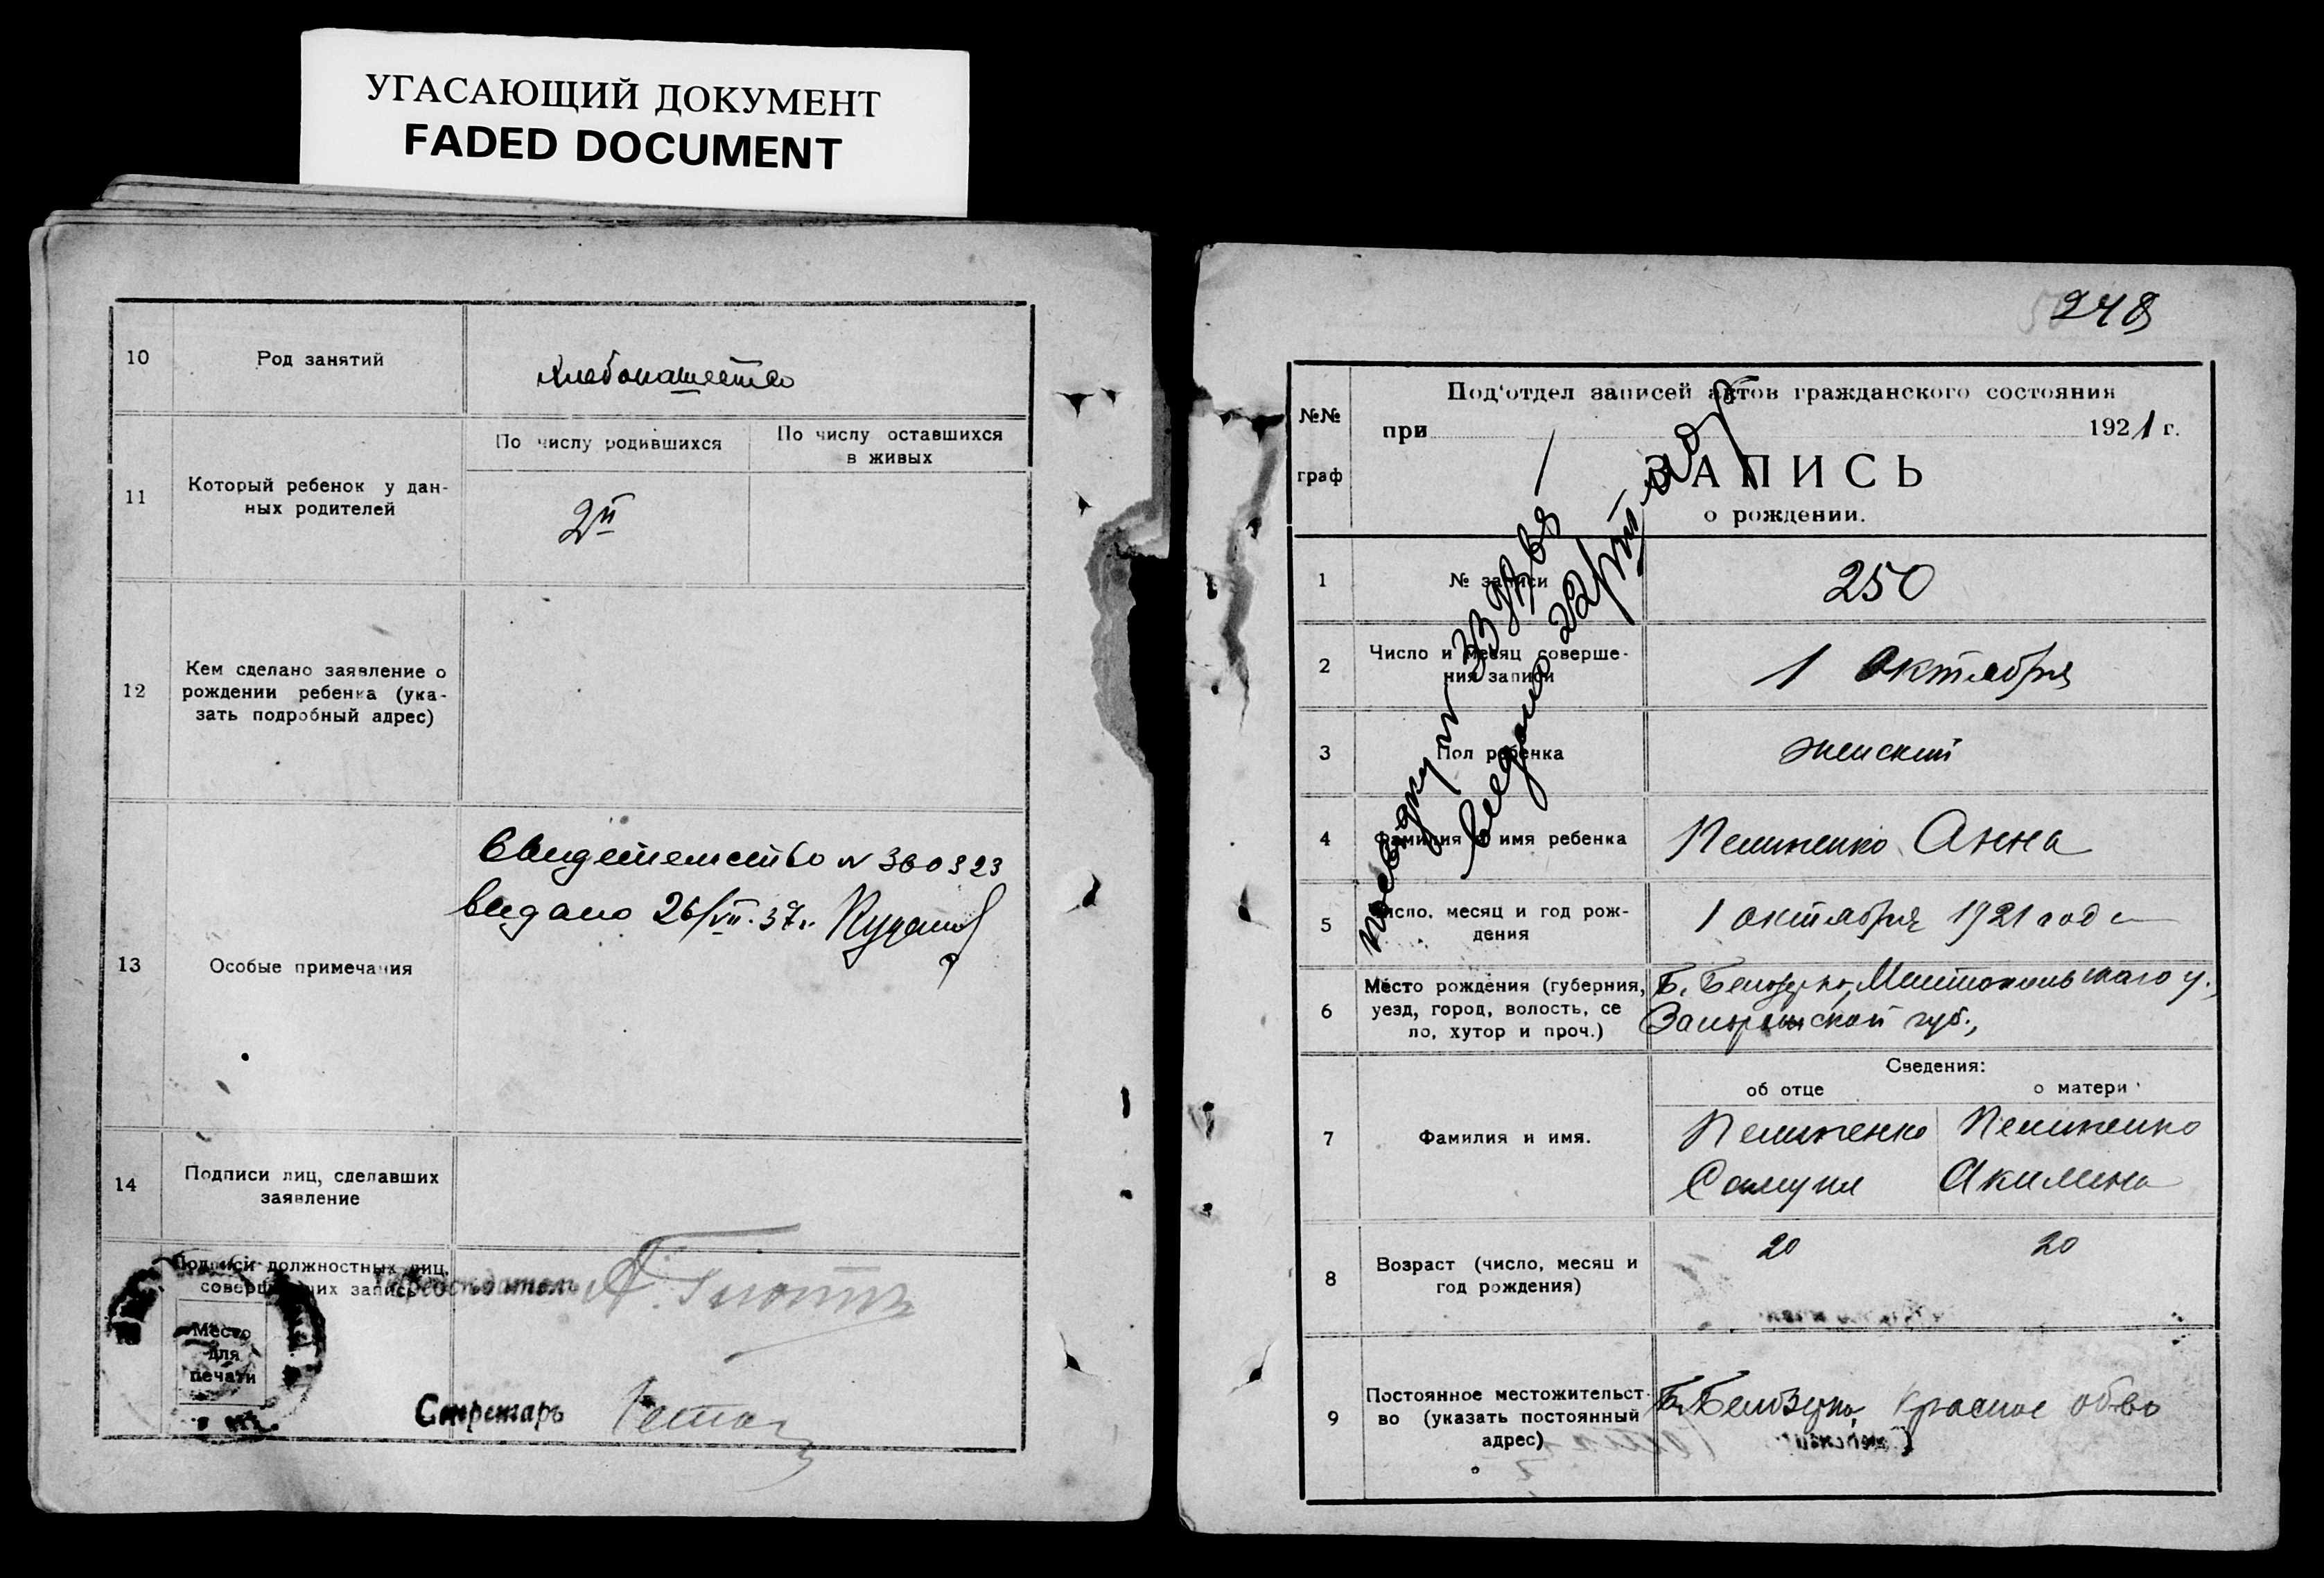 УГАСАЮЩИЙ ДОКУМЕНТ
FADED DOCUMENT
10
Род занятий
Хлебопашество
11
Который ребенок у дан-
ных родителей
По числу родившихся
2й
По числу оставшихся
в живых
12
Кем сделано заявление о
рождении ребенка (ука-
зать подробный адрес)
13
Особые примечания
Свидетельство N 360323
выдано 26/VII.37г.
14
Подписи лиц, сделавших
заявление
Подписи должностных лиц,
совершивших запись
Председатель
Место
для
печати
Секретарь
248
№№
граф
Под'отдел записей актов гражданского состояния
при 1921 г.
ЗАПИСЬ
о рождении.
1
№ записи
250
2
Число и месяц соверше-
ния записи
1 Октября
3
Пол ребенка
женский
4
Фамилия и имя ребенка
Пелипенко Анна
5
Число, месяц и год рож-
дения
1 октября 1921 года
6
Место рождения (губерния,
уезд, город, волость, се
ло, хутор и проч.)
Б. Белозерка, Мелитопольского у.,
Запорожской губ.,
Сведения:
об отце
о матери
7
Фамилия и имя.
Пелипенко
Самуил
Пелипенко
Акилина
8
Возраст (число, месяц и
год рождения)
20
20
9
Постоянное местожительст-
во (указать постоянный
адрес)
Б. Белозерка, Красное об-во
выдано